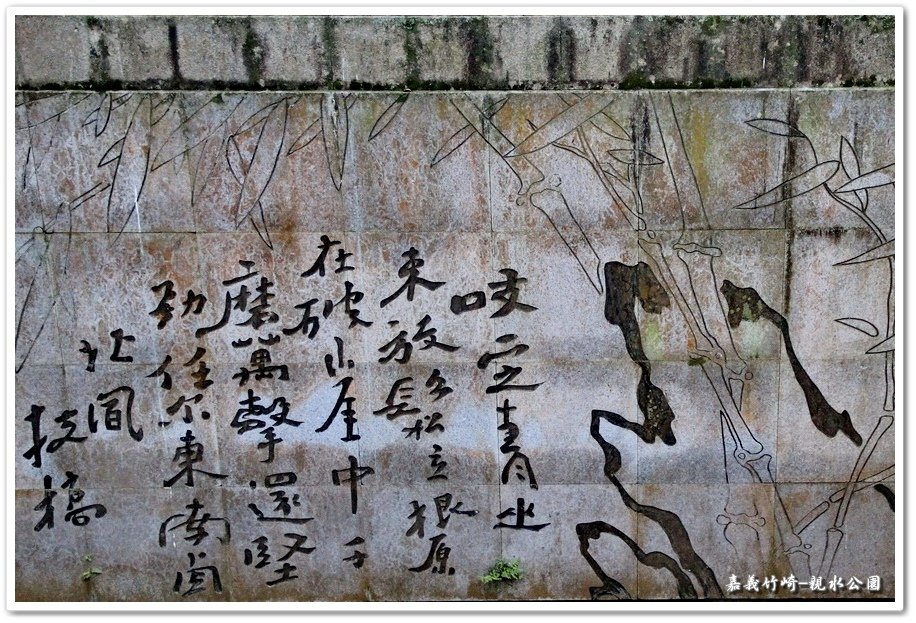 咬定青山
不放鬆立根原
在破崖中千
磨萬擊還堅
勁任尔東南西
北風
板橋
嘉義竹崎-親水公園